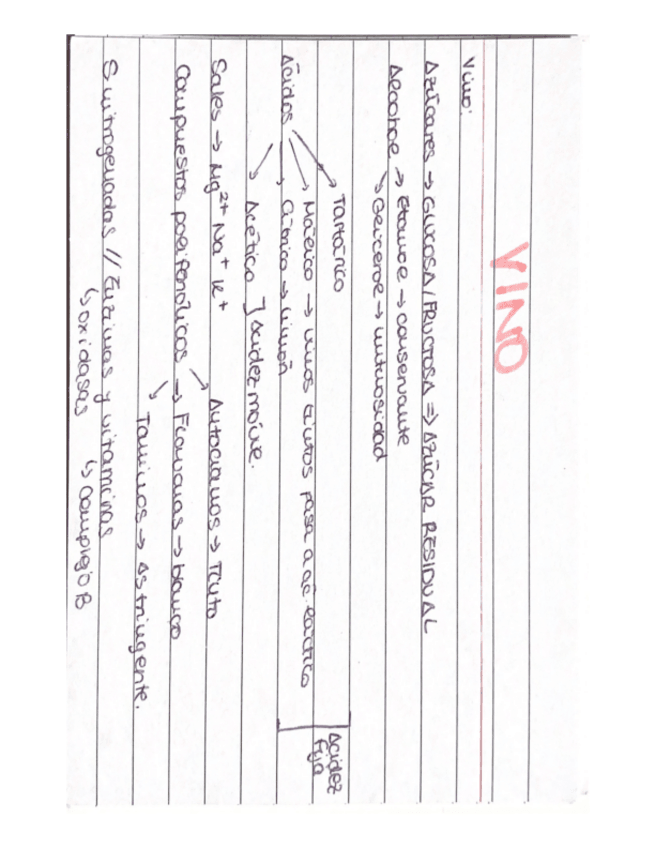 VINO
Vino:
Azúcares → GLUCOSA/FRUCTOSA => AZÚCAR RESIDUAL
Alcohol → etanol → conservante
→ Glicerol → untuosidad
Ácidos → Tartárico
→ Málico → vinos tintos pasa a ác. láctico
→ Cítrico → limón
Acidez fija
→ Acético ] Acidez móvil.
Sales → Mg²⁺ Na⁺ K⁺
Compuestos polifenólicos → Antocianos → Tinto
→ Flavonas → blanco
→ Taninos → Astringente.
S. nitrogenadas // Enzimas y vitaminas
↳ oxidasas ↳ complejo B